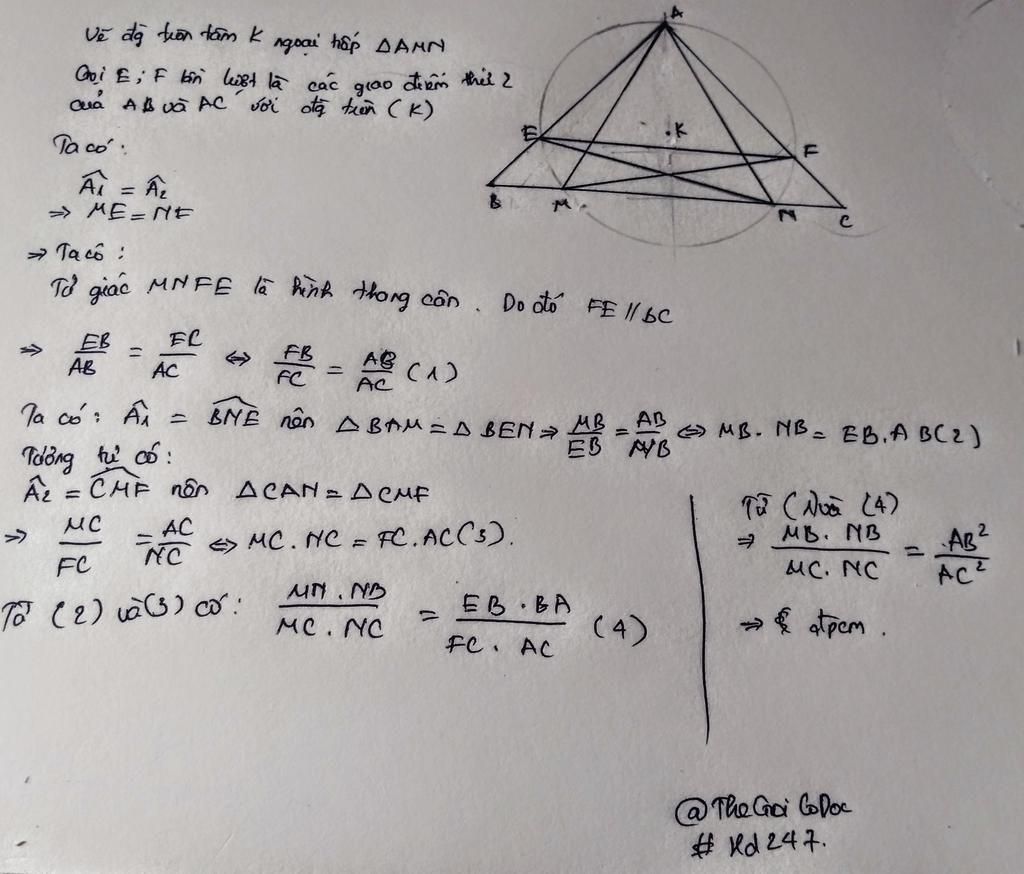 Vẽ đg tròn tâm K ngoại tiếp △AMN
Gọi E; F lần lượt là các giao điểm thứ 2
của AB và AC với đg tròn (K)
A
E
K
F
B
M
N
C
Ta có:
Â1 = Â2
⇒ ME = NF
⇒ Ta có:
Tứ giác MNFE là hình thang cân. Do đó FE // BC
⇒ EB/AB = FC/AC ⇔ FB/FC = AB/AC (1)
Ta có: Â1 = BNE nên △BAM = △BEN ⇒ MB/EB = AB/NB ⇔ MB. NB = EB. A B(2)
Tương tự có:
Â2 = CMF nên △CAN = △CMF
⇒ MC/FC = AC/NC ⇔ MC. NC = FC. AC(3).
Từ (2) và (3) có: MN. NB/MC. NC = EB. BA/FC. AC (4)
Từ (1) và (4)
⇒ MB. NB/MC. NC = AB²/AC²
⇒ đpcm.
@TheGioi CoDoc
# Hd247.